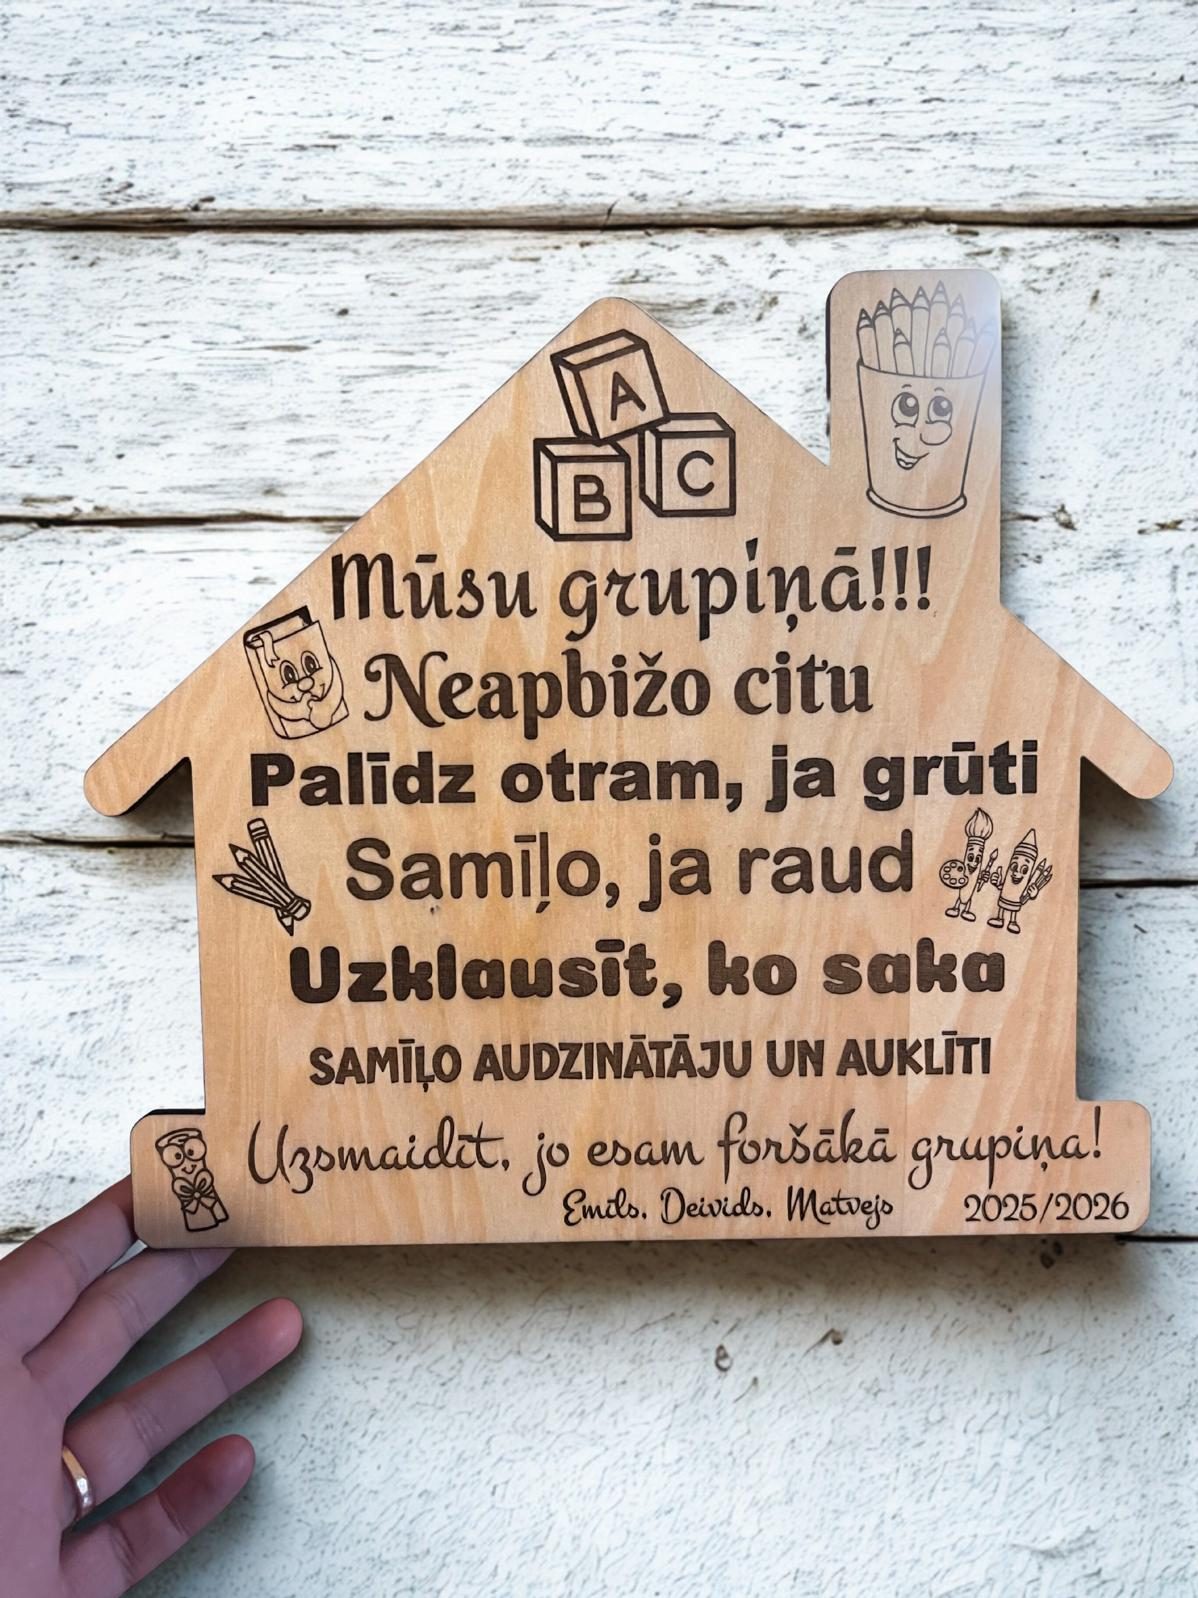 A
B C
Mūsu grupiņā!!!
Neapbižo citu
Palīdz otram, ja grūti
Samīļo, ja raud
Uzklausīt, ko saka
SAMĪĻO AUDZINĀTĀJU UN AUKLĪTI
Uzsmaidīt, jo esam foršākā grupiņa!
Emīls, Deivids, Matvejs 2025/2026